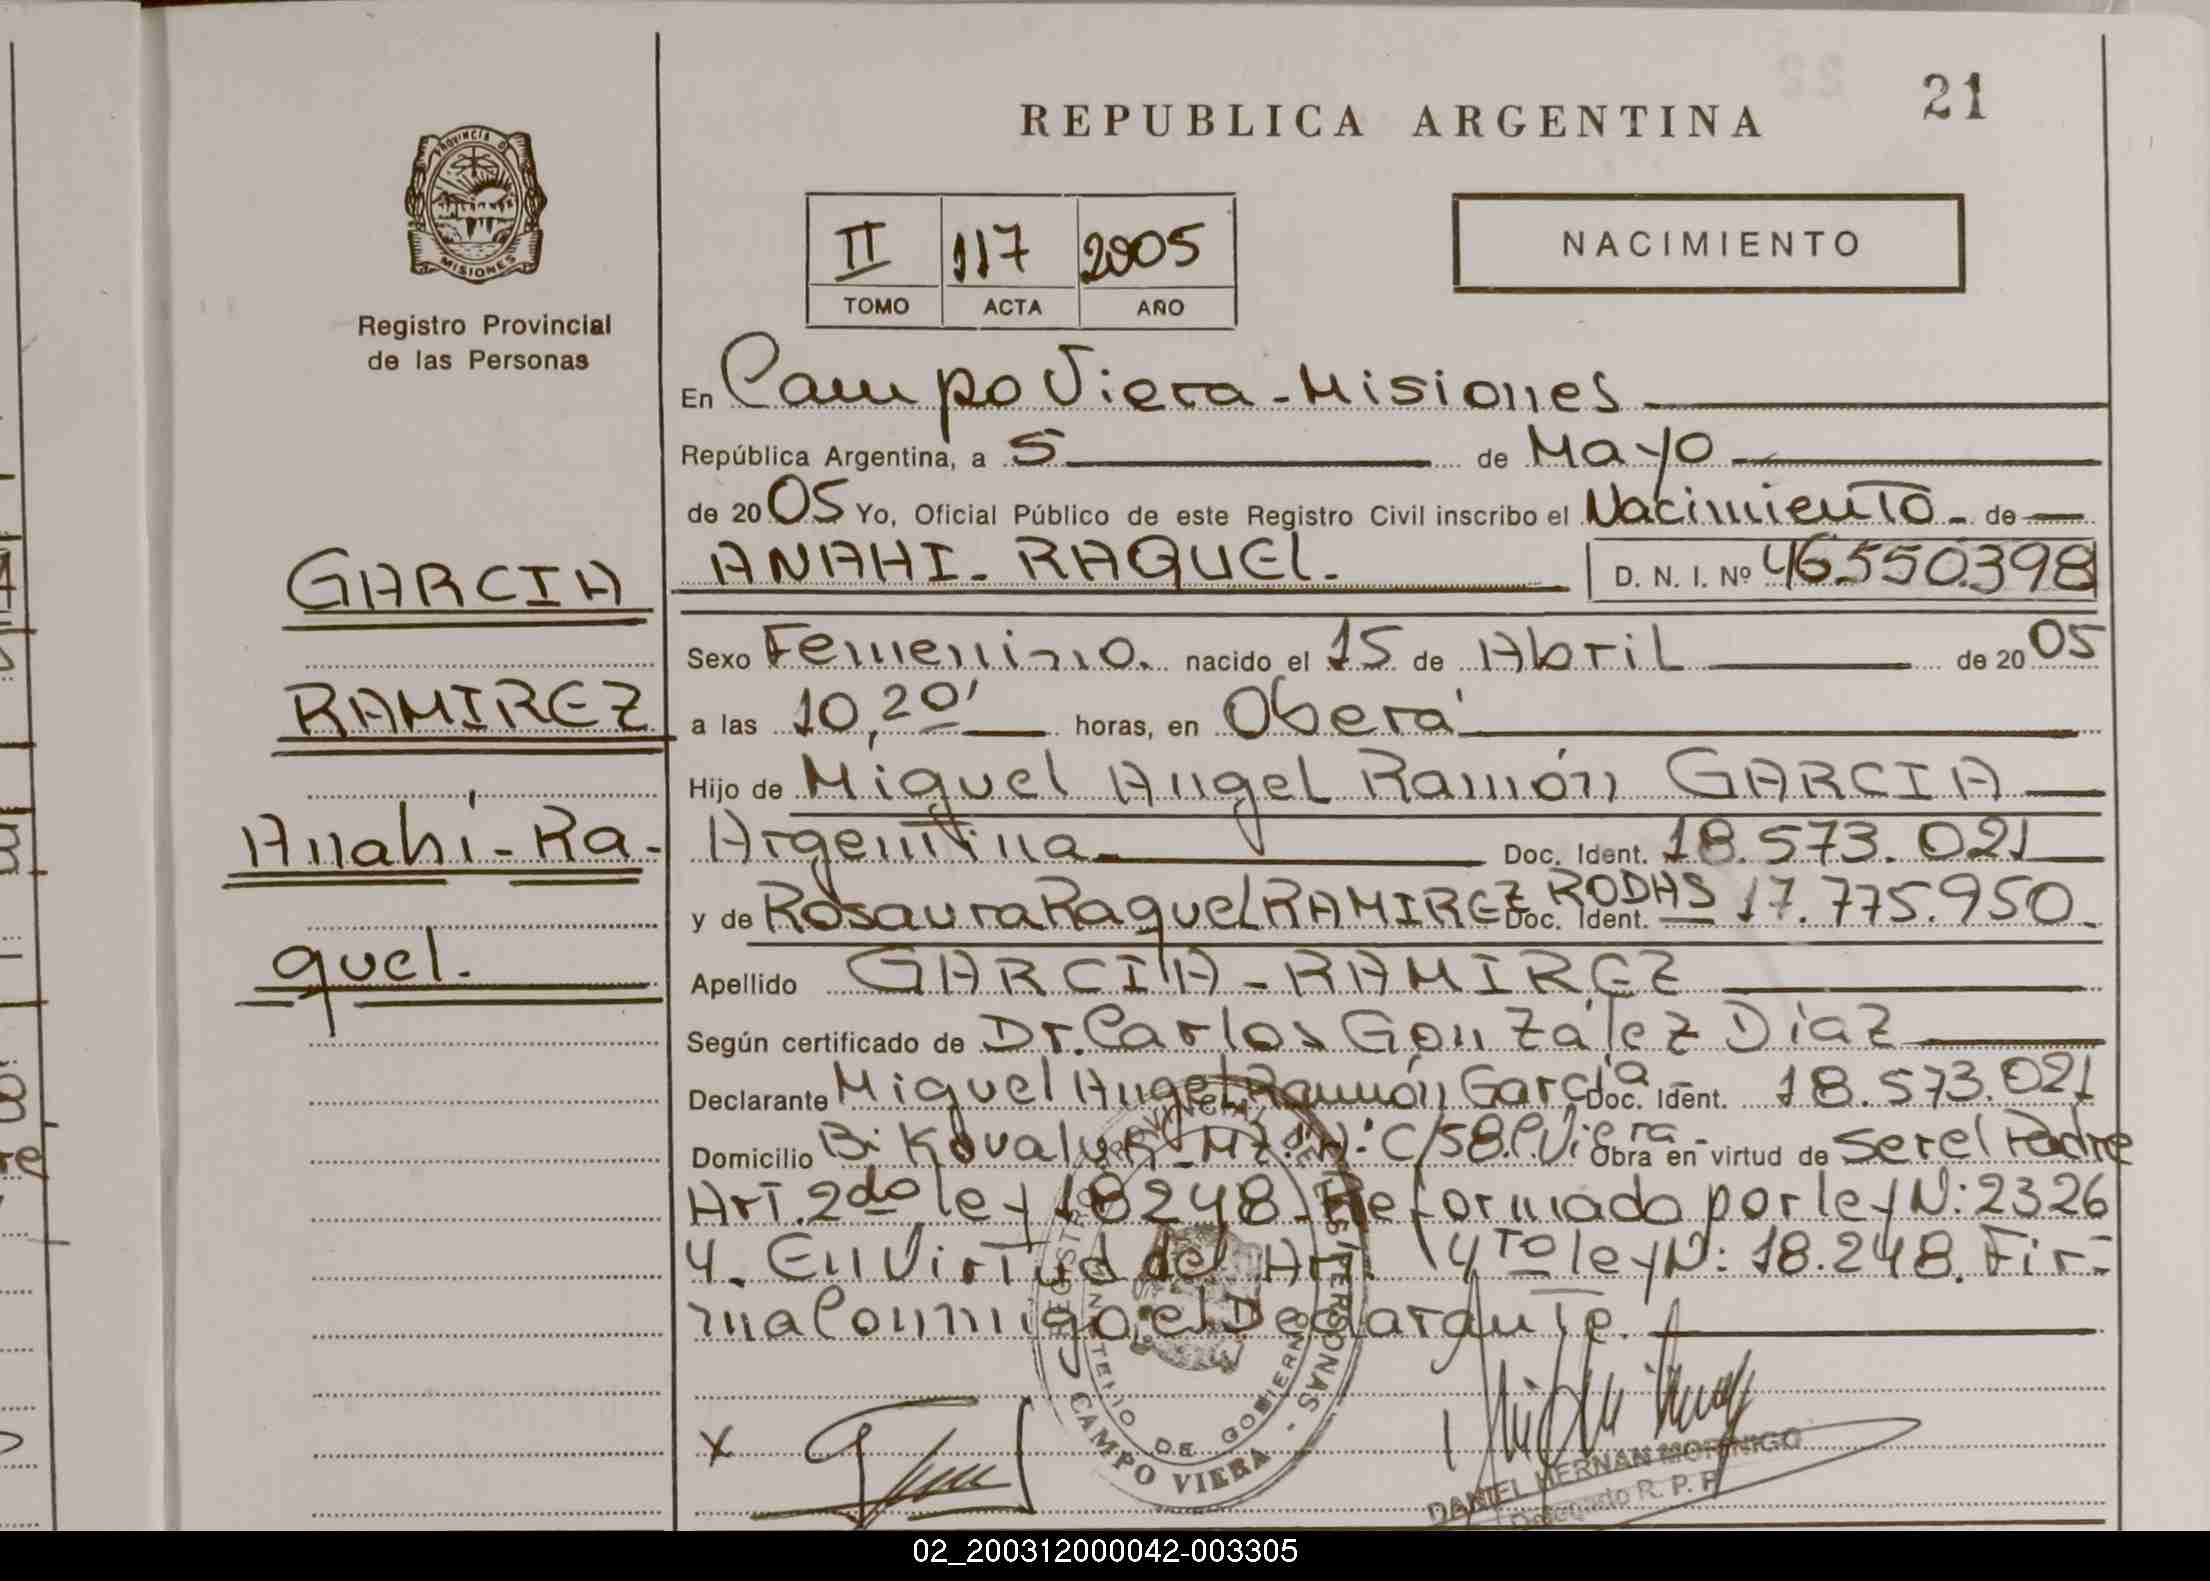 REPUBLICA ARGENTINA
21
PROVINCIA D
MISIONES
Registro Provincial
de las Personas
II 117 2005
TOMO ACTA AÑO
NACIMIENTO
En Campo Viera - Misiones
República Argentina, a 5 de Mayo
de 2005 Yo, Oficial Público de este Registro Civil inscribo el Nacimiento - de
ANAHI - RAQUEL. D. N. I. Nº 46.550.398
GARCIA
RAMIREZ
Anahí - Ra-
quel.
Sexo Femenino. nacido el 15 de Abril de 2005
a las 10,20' horas, en Oberá
Hijo de Miguel Angel Ramón GARCIA
Argentina Doc. Ident. 18.573.021
y de Rosaura Raquel RAMIREZ RODAS Doc. Ident. 17.775.950
Apellido GARCIA - RAMIREZ
Según certificado de Dr. Carlos González Díaz
Declarante Miguel Angel Ramón García Doc. Ident. 18.573.021
Domicilio Bº Kovaluk - Mz: C/58. C. Viera - Obra en virtud de ser el Padre
Art. 2do ley 18248. Reformada por ley N: 2326
4. En Virtud del Art. 4to ley N: 18.248. Fir-
ma Conmigo el Declarante.
X
CAMPO VIERA
DANIEL HERNAN MORINIGO
Delegado R. P. P.
02_200312000042-003305